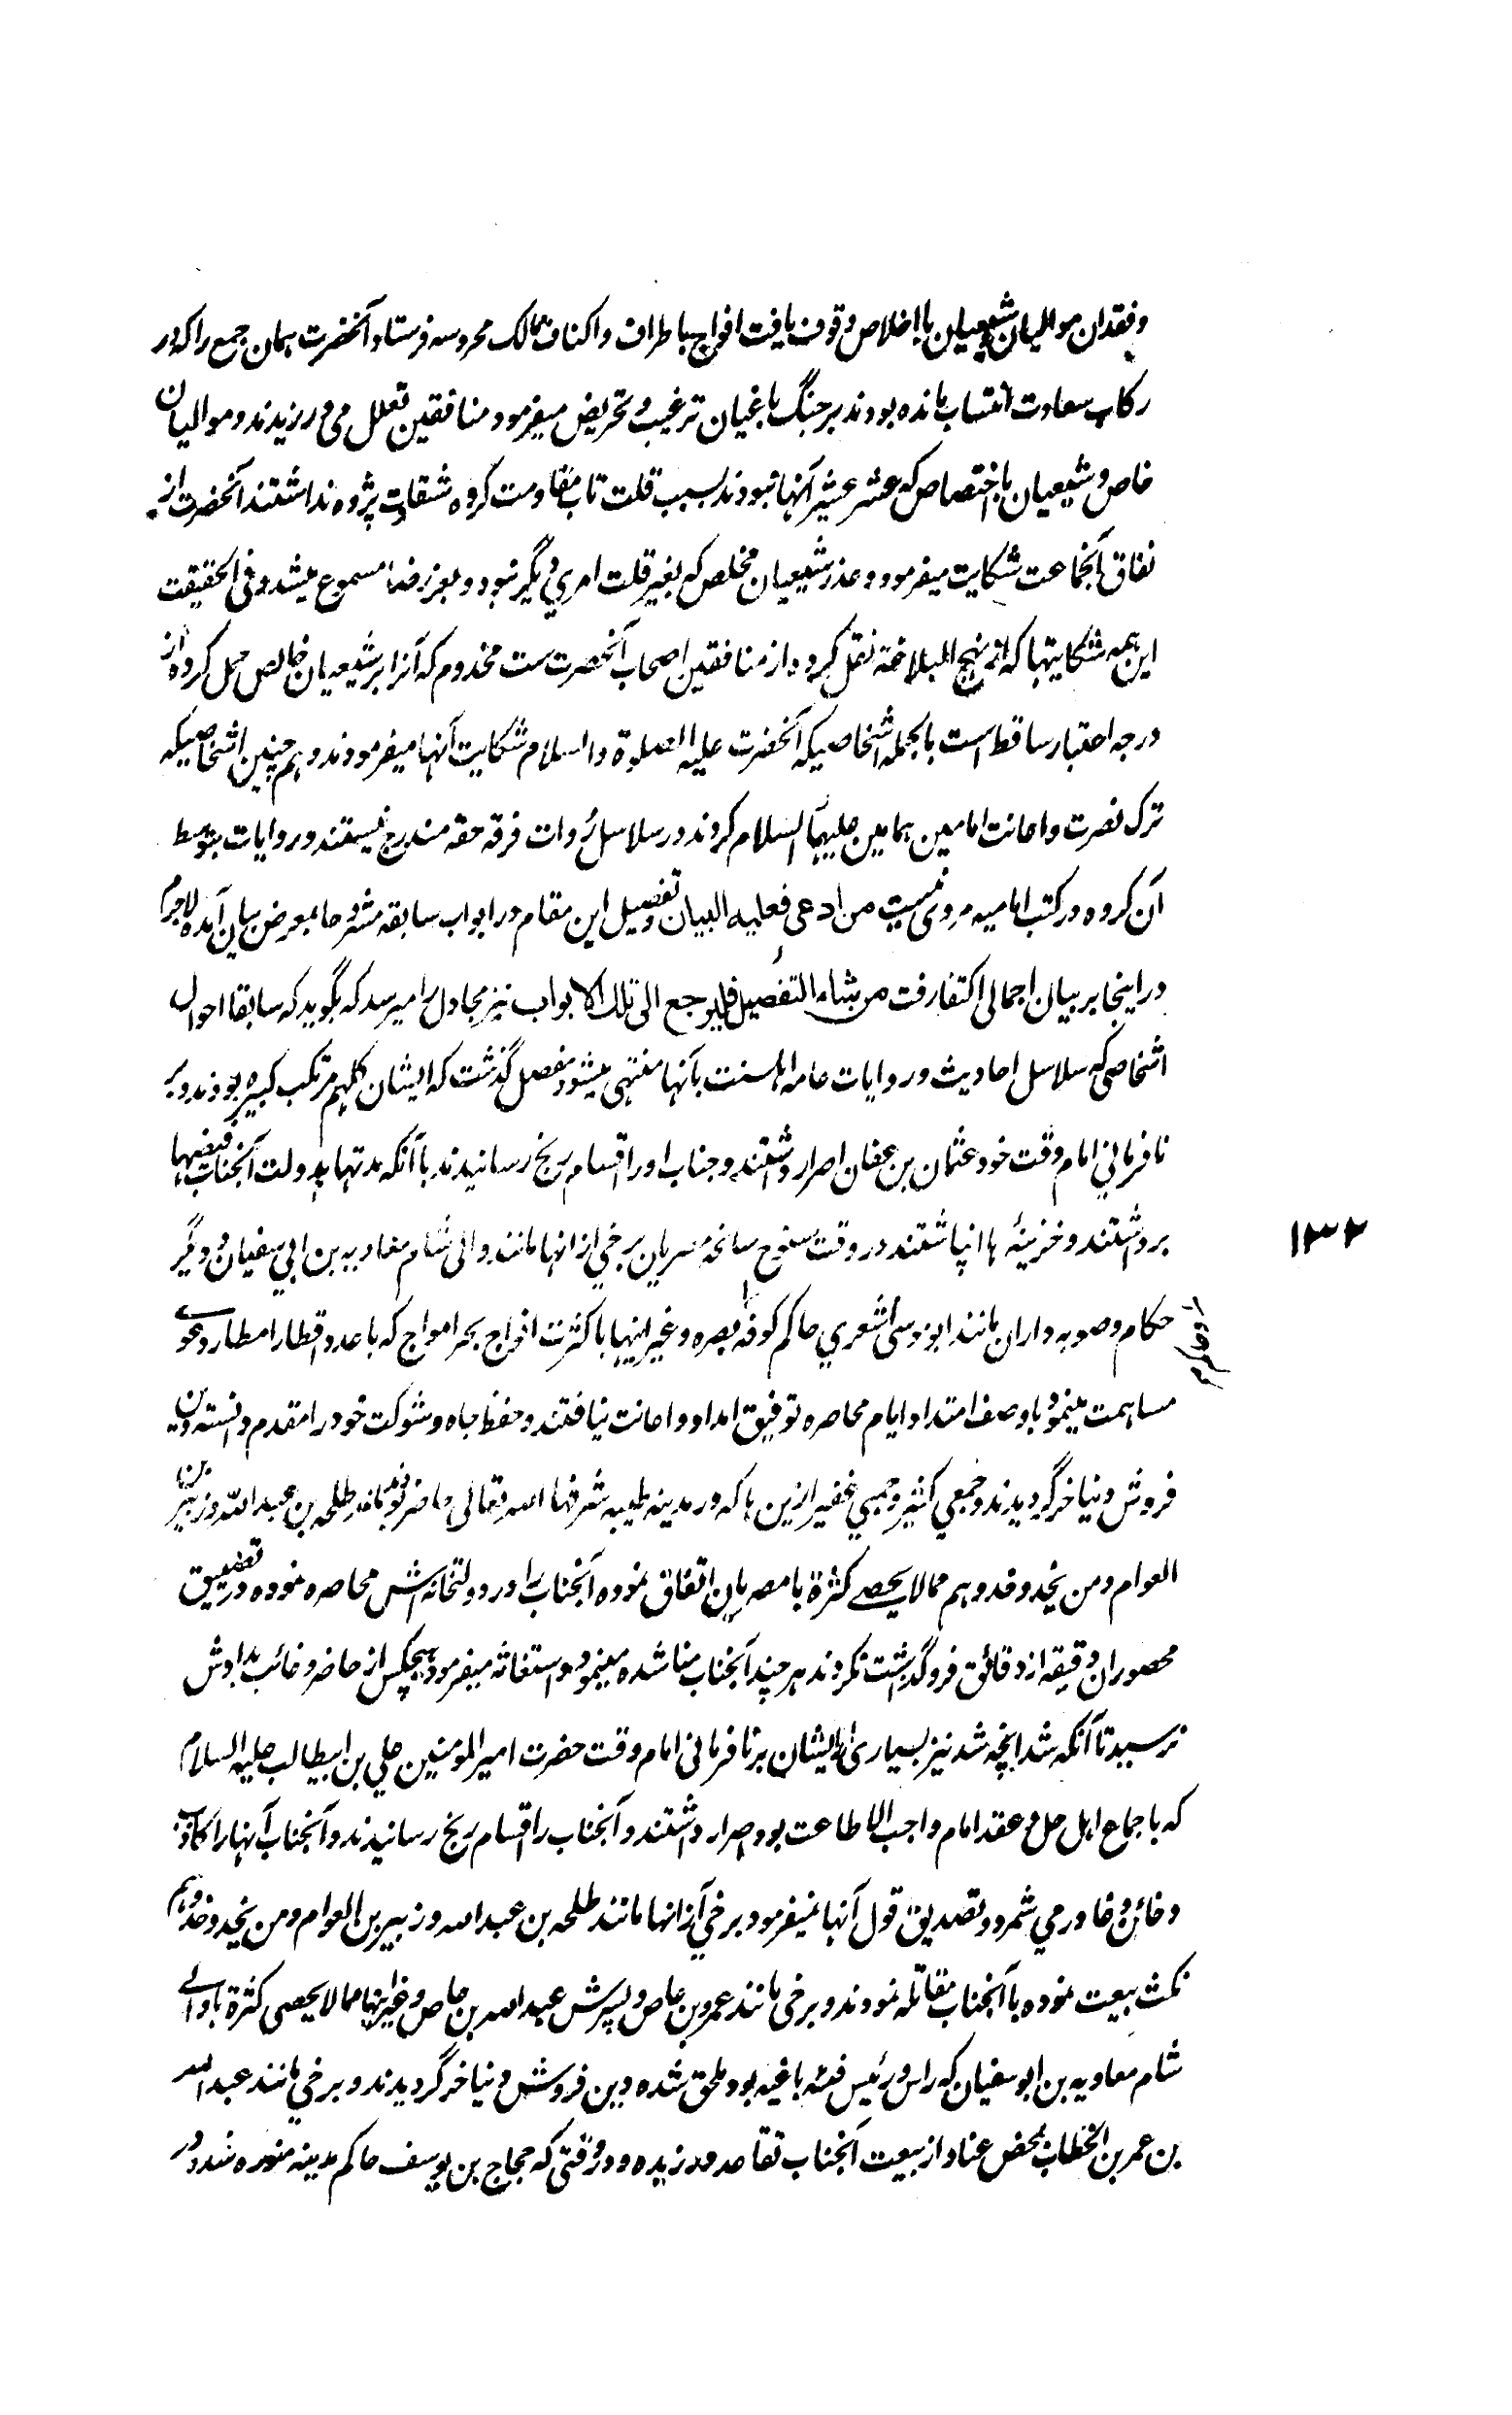 و فقدان موالیان و شیعیان با اخلاص وقوف یافت افواج باطراف و اکناف ممالک محروسه فرستاد آنحضرت همان جمع را که در
رکاب سعادت انتساب مانده بودند بر جنگ باغیان ترغیب و تحریض میفرمود منافقین تعلل می ورزیدند و موالیان
خاص و شیعیان با اختصاص که عشر عشیر آنها نبودند بسبب قلت تاب مقاومت گروه شقاوت پژوه نداشتند آنحضرت از
نفاق آنجماعت شکایت میفرمود و عذر شیعیان مخلص که بغیر قلت امری دیگر نبود و بعز رضا مسموع میشد و فی الحقیقت
این همه شکایتها که از نهج البلاغة نقل کرده از منافقین اصحاب آنحضرت ست مخدوم که آنرا بر شیعیان خالص حمل کرده از
درجه اعتبار ساقط است بالجمله اشخاصیکه آنحضرت علیه الصلوة والسلام شکایت آنها میفرمودند و هم چنین اشخاصیکه
ترک نصرت و اعانت امامین همامین علیهما السلام کردند در سلاسل روات فرقه حقه مندرج نیستند و روایات بتوسط
آن گروه در کتب امامیه مروی نیست من ادعی فعلیه البیان و تفصیل این مقام در ابواب سابقه مشروحا بمعرض بیان آمده لاجرم
در اینجا بر بیان اجمالی اکتفا رفت من شاء التفصیل فلیرجع الی تلک الابواب نیز مجادل را میرسد که بگوید که سابقا احوال
اشخاصی که سلاسل احادیث و روایات عامه اهلسنت بآنها منتهی میشود مفصل گذشت که ایشان کلهم مرتکب کبیره بودند و بر
نافرمانی امام وقت خود عثمان بن عفان اصرار داشتند و جناب او را اقسام رنج رسانیدند با آنکه مدتها بدولت آنجناب فیضها
برداشتند و خزینه ها انباشتند در وقت سنوح سانحه مصریان برخی از انها مانند والی شام معاویه بن ابی سفیان و دیگر
۱۳۲
حکام و صوبه داران مانند ابو موسی اشعری حاکم کوفه و بصره و غیر اینها با کثرت افواج بحر امواج که با عدد قطار امطار دعوی
مساهمت مینمود با وصف امتداد ایام محاصره توفیق امداد و اعانت نیافتند و حفظ جاه و شوکت خود را مقدم دانسته دین
فروش دنیا خر گردیدند و جمعی کثیر و جمی غفیر ازین ها که در مدینه طیبه شرفها الله تعالی حاضر بودند مانند طلحه بن عبد الله و زبیر بن
العوام و من یحذو حذوهم ممالا یحصی کثرة با مصریان اتفاق نموده آنجناب را در دولتخانه اش محاصره نموده در تضییق
محصوران دقیقه از دقائق فروگذاشت نکردند هر چند آنجناب مناشده مینمود و استغاثه میفرمود هیچکس از حاضر و غائب بدادش
نرسید تا آنکه شد انچه شد نیز بسیاری از ایشان بر نافرمانی امام وقت حضرت امیر المومنین علی بن ابیطالب علیه السلام
که باجماع اهل حل و عقد امام واجب الاطاعت بود اصرار داشتند و آنجناب را اقسام رنج رسانیدند و آنجناب آنها را کاذب
و خائن و غادر می شمرد و تصدیق قول آنها نمیفرمود برخی از انها مانند طلحه بن عبد الله و زبیر بن العوام و من یحذو حذوهم
نکث بیعت نموده با آنجناب مقاتله نمودند و برخی مانند عمرو بن عاص و پسرش عبد الله بن عاص و غیر اینها ممالا یحصی کثرة با والی
شام معاویه بن ابو سفیان که راس و رئیس فئه باغیه بود ملحق شده دین فروش دنیا خر گردیدند و برخی مانند عبد الله
بن عمر بن الخطاب بمحض عناد از بیعت آنجناب تقاعد ورزیده و در وقتی که حجاج بن یوسف حاکم مدینه منوره شد در